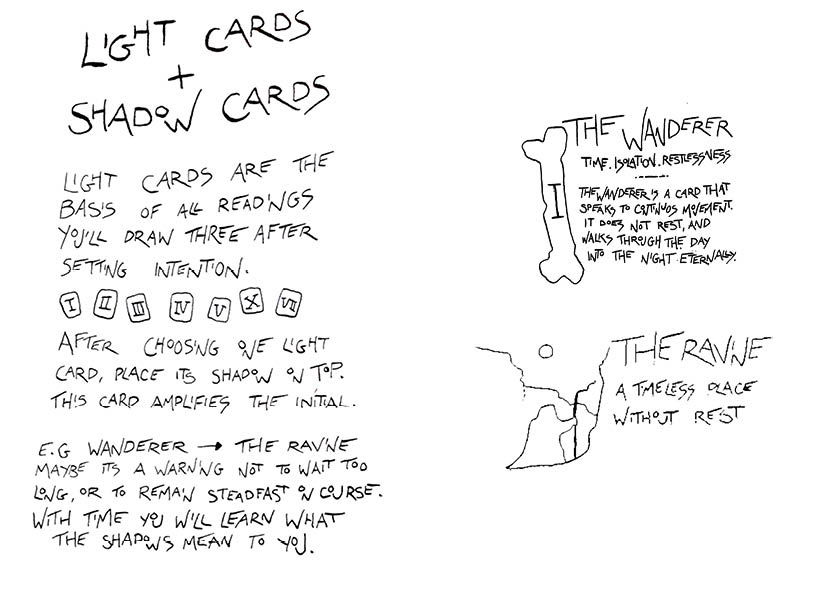 LIGHT CARDS
+
SHADOW CARDS
LIGHT CARDS ARE THE
BASIS OF ALL READINGS
YOU'LL DRAW THREE AFTER
SETTING INTENTION.
I II III IV V X VII
AFTER CHOOSING ONE LIGHT
CARD, PLACE ITS SHADOW ON TOP.
THIS CARD AMPLIFIES THE INITIAL.
E.G WANDERER → THE RAVINE
MAYBE ITS A WARNING NOT TO WAIT TOO
LONG, OR TO REMAIN STEADFAST ON COURSE.
WITH TIME YOU WILL LEARN WHAT
THE SHADOWS MEAN TO YOU.
I
THE WANDERER
TIME. ISOLATION. RESTLESSNESS
THE WANDERER IS A CARD THAT
SPEAKS TO CONTINUOS MOVEMENT.
IT DOES NOT REST, AND
WALKS THROUGH THE DAY
INTO THE NIGHT ETERNALLY.
THE RAVINE
A TIMELESS PLACE
WITHOUT REST